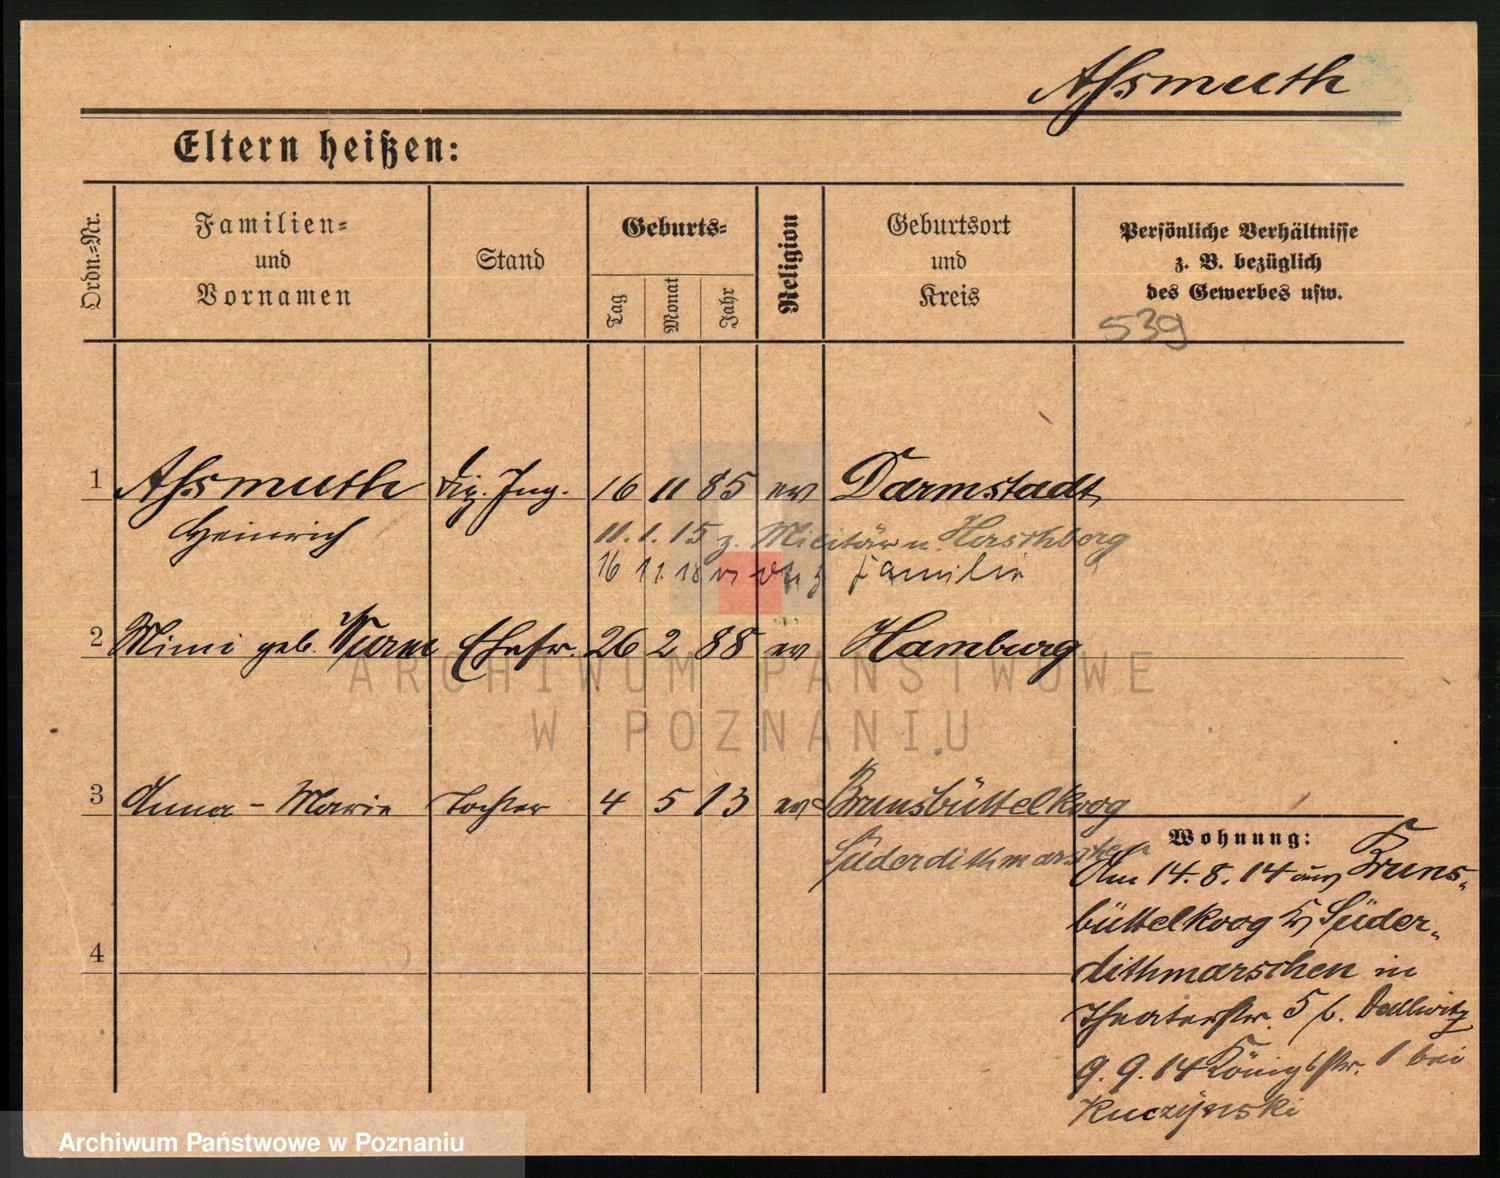 Assmuth
Eltern heißen:
Ordn.-Nr.
Familien-
und
Vornamen
Stand
Geburts-
Tag
Monat
Jahr
Religion
Geburtsort
und
Kreis
Persönliche Verhältnisse
z. B. bezüglich
des Gewerbes usw.
539
1 Assmuth Dip. Ing. 16 11 85 ev Darmstadt
Heinrich
11. 1. 15 z. Militär n. Hirschberg
16 11. 18 Familie
2 Mimi geb. Ehefr. 26 2 88 ev Hamburg
3 Anna-Marie Tochter 4 5 13 ev Brunsbüttelkoog
Süderdithmarschen
Wohnung:
Am 14.8.14 aus Bruns-
büttelkoog Kr Süder-
dithmarschen in
Theaterstr. 5 b.
9.9.14 Königstr. 1 bei
Kuczynski
4
ARCHIWUM PAŃSTWOWE
W POZNANIU
Archiwum Państwowe w Poznaniu